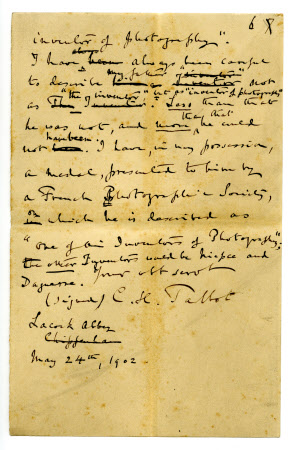 6
inventor of Photography".
I have also always been careful
to describe my father not
as "the inventor" but as "inventor of photography"
Less than that
he was not, and more than that he could
not have been. I have, in my possession,
a medal, presented to him by
a French Photographic Society,
on which he is described as
"one of six Inventors of Photography",
the other Inventors would be Niepce and
Daguerre. Your obt servt
(signed) C. H. Talbot
Lacock Abbey
Chippenham
May 24th, 1902